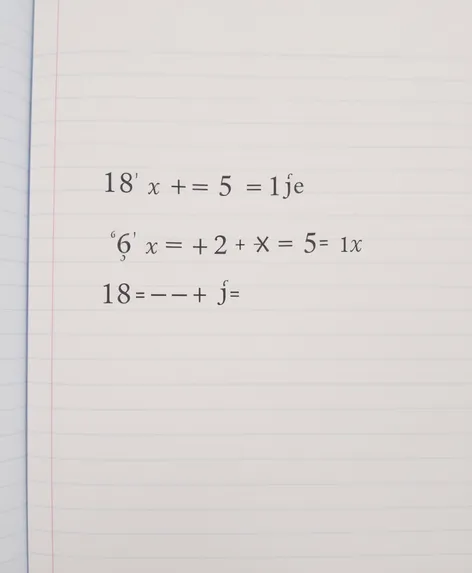 18' x += 5 = 1je
6' x = +2 + X = 5= 1x
18=−−+ j=